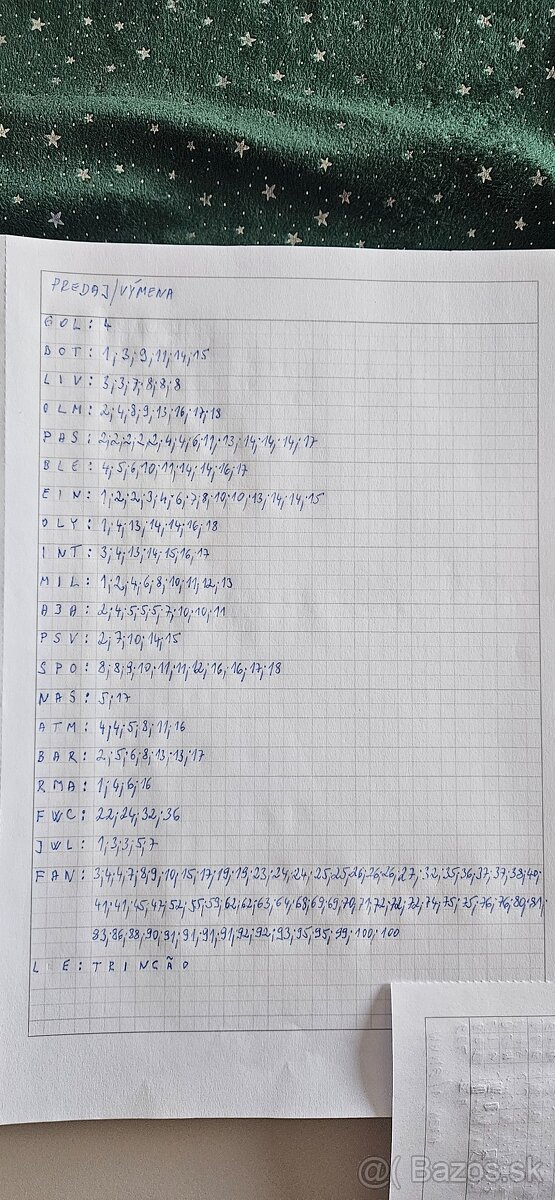 PREDAJ/VÝMENA
GOL: 4
BOT: 1; 3; 9; 11; 14; 15
LIV: 3; 3; 7; 8; 8; 8
OLM: 2; 4; 8; 9; 13; 16; 17; 18
PAS: 2; 2; 2; 2; 2; 4; 4; 6; 11; 13; 14; 14; 14; 17
BLE: 4; 5; 6; 10; 11; 14; 14; 16; 17
EIN: 1; 2; 2; 3; 4; 6; 7; 8; 10; 10; 13; 14; 14; 15
OLY: 1; 4; 13; 14; 14; 16; 18
INT: 3; 4; 13; 14; 15; 16; 17
MIL: 1; 2; 4; 6; 8; 10; 11; 12; 13
A3A: 2; 4; 5; 5; 5; 7; 10; 10; 11
PSV: 2; 7; 10; 14; 15
SPO: 8; 8; 9; 10; 11; 11; 12; 16; 16; 17; 18
NAS: 5; 17
ATM: 4; 4; 5; 8; 11; 16
BAR: 2; 5; 6; 8; 13; 13; 17
RMA: 1; 4; 6; 16
FWC: 22; 24; 32; 36
JWL: 1; 3; 3; 5; 7
FAN: 3; 4; 4; 7; 8; 9; 10; 15; 17; 19; 19; 23; 24; 24; 25; 25; 26; 26; 26; 27; 32; 35; 36; 37; 37; 38; 40;
41; 41; 45; 47; 52; 55; 59; 62; 62; 63; 64; 68; 69; 69; 70; 71; 72; 72; 72; 74; 75; 75; 76; 76; 80; 81;
83; 86; 88; 90; 91; 91; 91; 91; 92; 92; 93; 95; 95; 99; 100; 100
LE: TRINCÃO
@( Bazos.sk